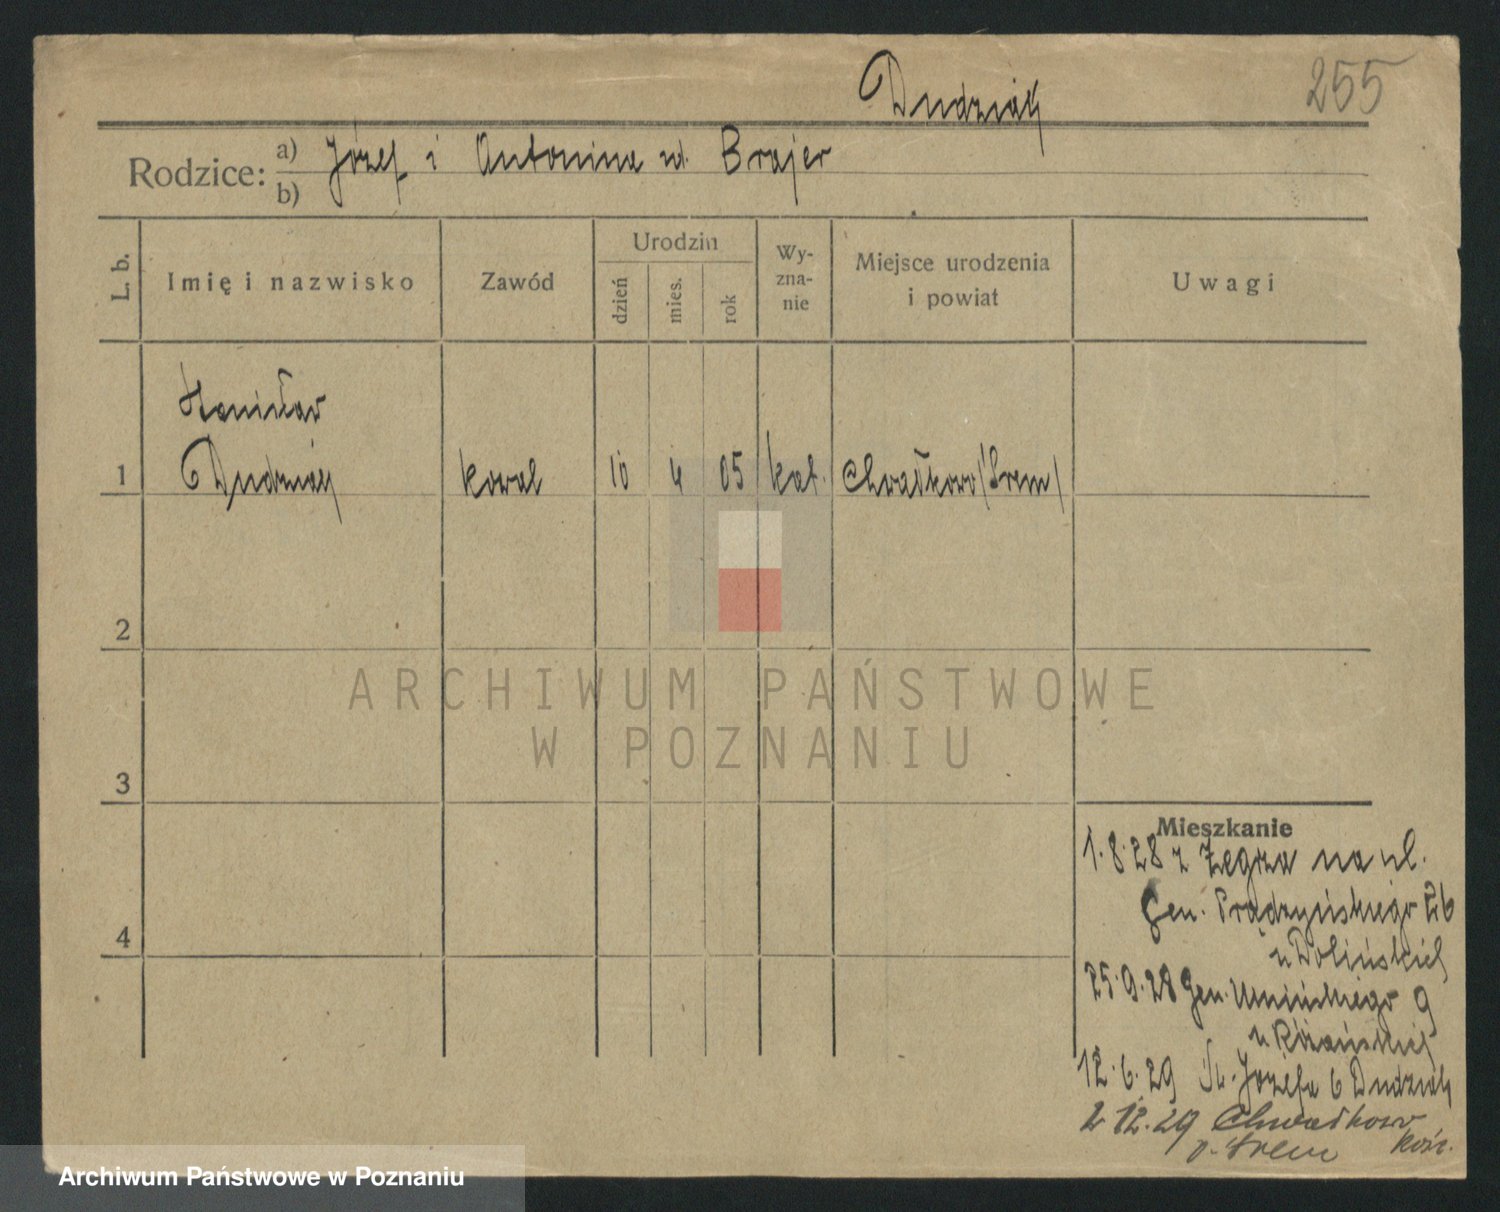 Dudziak
255
Rodzice: a) Józef i Antonina ur. Brajer
b)
L. b.
Imię i nazwisko
Zawód
Urodzin
dzień
mies.
rok
Wy-
zna-
nie
Miejsce urodzenia
i powiat
Uwagi
Stanisław
1 Dudziak kowal 10 4 05 kat. Chwałkowo /Śrem/
2
3
4
Mieszkanie
1.8.28 z Zegrza na ul.
Gen. Prądzyńskiego 26
u Dolińskiej
25.9.28 Gen. Umińskiego 9
u Różańskiej
12.6.29 Św. Józefa 6 Dudziak
2.12.29 Chwałkowo
p. Śrem
ARCHIWUM PAŃSTWOWE
W POZNANIU
Archiwum Państwowe w Poznaniu